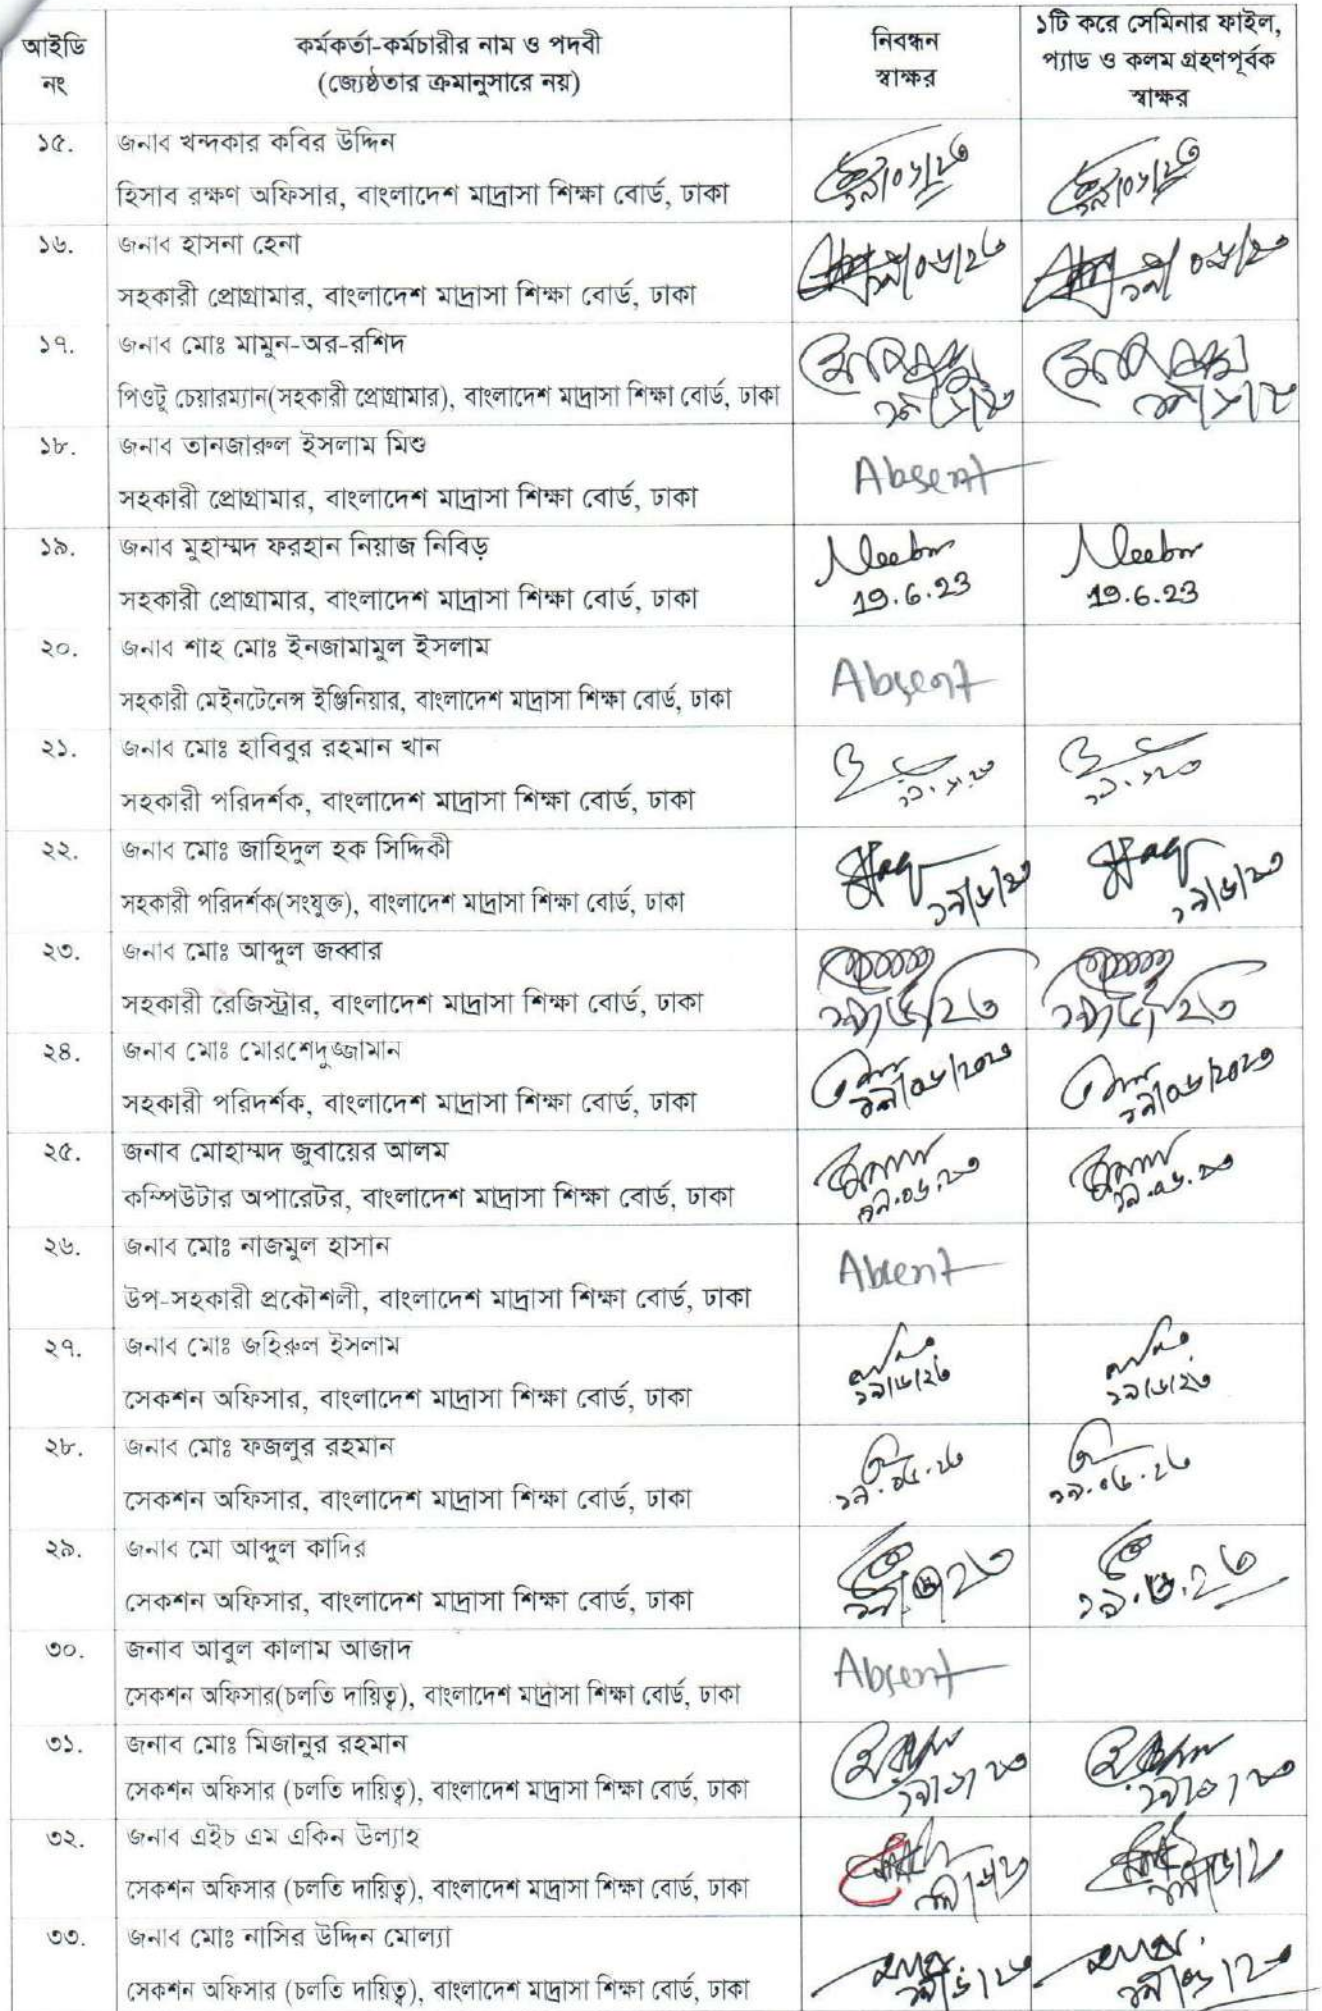 আইডি
নং
কর্মকর্তা-কর্মচারীর নাম ও পদবী
(জ্যেষ্ঠতার ক্রমানুসারে নয়)
নিবন্ধন
স্বাক্ষর
১টি করে সেমিনার ফাইল,
প্যাড ও কলম গ্রহণপূর্বক
স্বাক্ষর
১৫.
জনাব খন্দকার কবির উদ্দিন
হিসাব রক্ষণ অফিসার, বাংলাদেশ মাদ্রাসা শিক্ষা বোর্ড, ঢাকা
১৬.
জনাব হাসনা হেনা
সহকারী প্রোগ্রামার, বাংলাদেশ মাদ্রাসা শিক্ষা বোর্ড, ঢাকা
১৭.
জনাব মোঃ মামুন-অর-রশিদ
পিওটু চেয়ারম্যান(সহকারী প্রোগ্রামার), বাংলাদেশ মাদ্রাসা শিক্ষা বোর্ড, ঢাকা
১৮.
জনাব তানজারুল ইসলাম মিশু
সহকারী প্রোগ্রামার, বাংলাদেশ মাদ্রাসা শিক্ষা বোর্ড, ঢাকা
Absent
১৯.
জনাব মুহাম্মদ ফরহান নিয়াজ নিবিড়
সহকারী প্রোগ্রামার, বাংলাদেশ মাদ্রাসা শিক্ষা বোর্ড, ঢাকা
19.6.23
19.6.23
২০.
জনাব শাহ মোঃ ইনজামামুল ইসলাম
সহকারী মেইনটেনেন্স ইঞ্জিনিয়ার, বাংলাদেশ মাদ্রাসা শিক্ষা বোর্ড, ঢাকা
Absent
২১.
জনাব মোঃ হাবিবুর রহমান খান
সহকারী পরিদর্শক, বাংলাদেশ মাদ্রাসা শিক্ষা বোর্ড, ঢাকা
২২.
জনাব মোঃ জাহিদুল হক সিদ্দিকী
সহকারী পরিদর্শক(সংযুক্ত), বাংলাদেশ মাদ্রাসা শিক্ষা বোর্ড, ঢাকা
১৯/৬/২৩
১৯/৬/২৩
২৩.
জনাব মোঃ আব্দুল জব্বার
সহকারী রেজিস্ট্রার, বাংলাদেশ মাদ্রাসা শিক্ষা বোর্ড, ঢাকা
১৯/৬/২৩
১৯/৬/২৩
২৪.
জনাব মোঃ মোরশেদুজ্জামান
সহকারী পরিদর্শক, বাংলাদেশ মাদ্রাসা শিক্ষা বোর্ড, ঢাকা
১৯/০৬/২০২৩
১৯/০৬/২০২৩
২৫.
জনাব মোহাম্মদ জুবায়ের আলম
কম্পিউটার অপারেটর, বাংলাদেশ মাদ্রাসা শিক্ষা বোর্ড, ঢাকা
১৯.০৬.২৩
১৯.০৬.২৩
২৬.
জনাব মোঃ নাজমুল হাসান
উপ-সহকারী প্রকৌশলী, বাংলাদেশ মাদ্রাসা শিক্ষা বোর্ড, ঢাকা
Absent
২৭.
জনাব মোঃ জহিরুল ইসলাম
সেকশন অফিসার, বাংলাদেশ মাদ্রাসা শিক্ষা বোর্ড, ঢাকা
১৯/৬/২৩
১৯/৬/২৩
২৮.
জনাব মোঃ ফজলুর রহমান
সেকশন অফিসার, বাংলাদেশ মাদ্রাসা শিক্ষা বোর্ড, ঢাকা
১৯.০৬.২৩
১৯.০৬.২৩
২৯.
জনাব মো আব্দুল কাদির
সেকশন অফিসার, বাংলাদেশ মাদ্রাসা শিক্ষা বোর্ড, ঢাকা
১৯.৬.২৩
৩০.
জনাব আবুল কালাম আজাদ
সেকশন অফিসার(চলতি দায়িত্ব), বাংলাদেশ মাদ্রাসা শিক্ষা বোর্ড, ঢাকা
Absent
৩১.
জনাব মোঃ মিজানুর রহমান
সেকশন অফিসার (চলতি দায়িত্ব), বাংলাদেশ মাদ্রাসা শিক্ষা বোর্ড, ঢাকা
৩২.
জনাব এইচ এম একিন উল্যাহ
সেকশন অফিসার (চলতি দায়িত্ব), বাংলাদেশ মাদ্রাসা শিক্ষা বোর্ড, ঢাকা
৩৩.
জনাব মোঃ নাসির উদ্দিন মোল্যা
সেকশন অফিসার (চলতি দায়িত্ব), বাংলাদেশ মাদ্রাসা শিক্ষা বোর্ড, ঢাকা